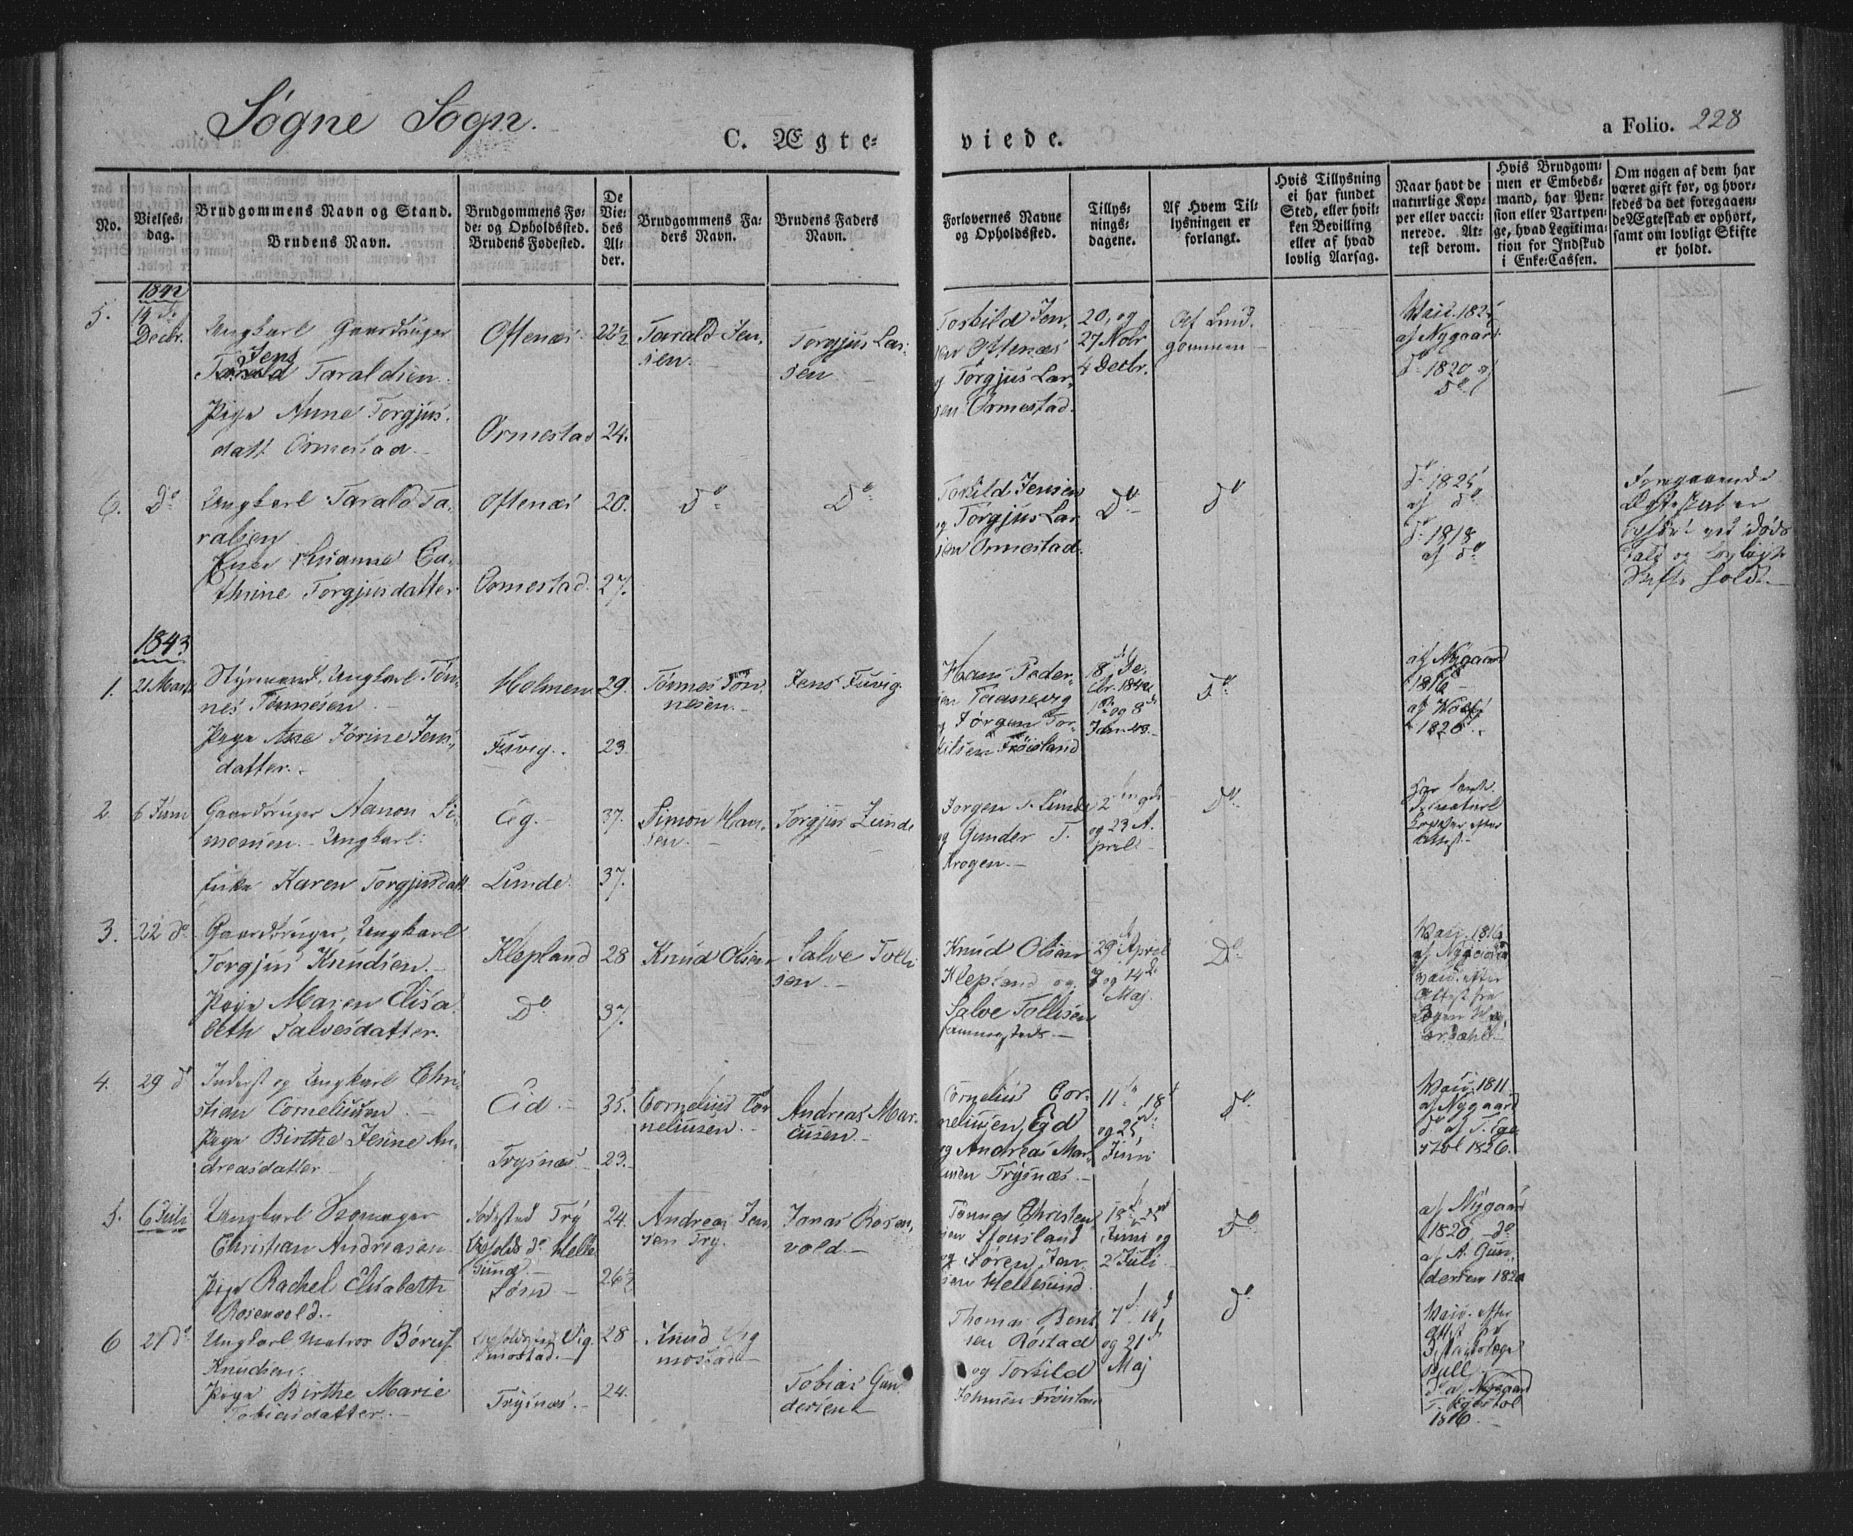 Søgne Sogn.
C. Ægte-
viede.
a Folio. 228
No.
Vielses-
dag.
Brudgommens Navn og Stand.
Brudens Navn.
Brudgommens Fø-
de- og Opholdssted.
Brudens Fødested.
De
Vie-
des
Al-
der.
Brudgommens Fa-
ders Navn.
Brudens Faders
Navn.
Forlovernes Navne
og Opholdssted.
Tillys-
nings-
dagene.
Af Hvem Til-
lysningen er
forlangt.
Hvis Tillysning
ei har fundet
Sted, eller hvil-
ken Bevilling
eller af hvad
lovlig Aarsag.
Naar havt de
naturlige Kop-
per eller vacci-
nerede. At-
test derom.
Hvis Brudgom-
men er Embeds-
mand, har Pen-
sion eller Vartpen-
ge, hvad Legitima-
tion for Indskud
i Enke-Cassen.
Om nogen af dem har
været gift før, og hvor-
ledes da det foregaaen-
de Ægteskab er ophørt,
samt om lovligt Skifte
er holdt.
1842
5.
14 de
Decbr.
Ungkarl Gaardbruger
Jens
Taraldsen.
Pige Anne Torgjus-
datt Ormestad
Oftenæs
Ormestad
22½
24.
Tarald Jen-
sen.
Torgjus Lar-
sen
Torkild Jen-
sen Oftenæs
og Torgjus Lar-
sen Ormestad.
20, og
27 Nobr
4 Decbr.
Af Brud-
gommen
Vaci. 1825
af Nygaard
do 1820 af
do
6.
Do
Ungkarl Tarald Ta-
ralsen
Enke Susanne Ca-
thrine Torgjusdatter
Oftenæs
Ormestad.
20.
27.
Do
Do
Torkild Jensen
og Torgjus Lar-
sen Ormestad.
Do
Do
do 1825
af do
do 1818
af do
Foregaaende
Ægteskab er
ophørt ved Døds
fald og lovligt
Skifte holdt.
1843
1.
21 Marts
Styrmand, Ungkarl Tøn-
nes Tønnesen
Pige Ane Jørine Jens-
datter.
Holmen
Tuvig.
29.
23.
Tønnes Tøn-
nesen.
Jens Tuvig.
Hans Peder-
sen Taanevig
og Jørgen Tor-
kilsen Frøisland
18 De
cbr. 1842
1 og 8
Jan. 43.
Do
af Nygaard
1816
af
1820.
2.
6 Juni
Gaardbruger Aanon Si-
monsen. Ungkarl.
Enke Karen Torgjusdatt
Eeg.
Lunde
37.
37.
Simon Han-
sen.
Torgjus Lunde
Jørgen T. Lunde
og Gunder T.
Krogen.
2
og 23 A-
pril
Do
Har havt
de naturl
Kopper efter
Attest.
3.
22 do
Gaardbruger, Ungkarl
Torgjus Knudsen.
Pige Maren Elisa-
beth Salvesdatter.
Klepland
Do
28
37.
Knud Olsen
Salve Tolli
sen
Knud Olsen
Klepland og
Salve Tollisen
sammesteds.
29 April
og 14 de
Maj.
Do
Vaci. 1816
af Nygaard
Vaci. efter
Attest fra
4.
29 do
Inderst og Ungkarl Chri-
stian Corneliusen
Pige Birthe Jerine An-
dreasdatter
Eid.
Trysnæs.
35.
23.
Cornelius Cor-
neliusen
Andreas Mar-
cusen
Cornelius Cor-
neliusen, Egd
og Andreas Mar-
cusen Trysnæs.
11 18
og 25
Juni
Do
Vaci. 1811
af Nygaard
do af T. Ege
stol 1826.
5.
6 Juli
Ungkarl Skomager
Christian Andreasen
Pige Rachel Elisabeth
Rosenvold.
Fødested Try
Opholds do Helle
sund.
Søm
24.
26½
Andreas Jen-
sen Try.
Jonas Rosen-
vold.
Tønnes Christen-
sen Stousland
og Søren Jen-
sen Hellesund
18 25
Juni og
2 Juli
Do
af Nygaard
1820 do
af A. Gun-
dersen 1820
6
27 do
Ungkarl Matros Børuf
Knudsen.
Pige Birthe Marie
Tobiasdatter.
Opholdssted Vig-
mostad.
Trysnæs.
28
24.
Knud Vig-
mostad
Tobias Gun-
dersen
Thomas Bent-
sen Røstad
og Torkild
Johnsen Frøisland
7 14
og 21
Maj
Do
Vaci. efter
Attest fra
Bull
do af Nygaard
T. Egestol
1816.